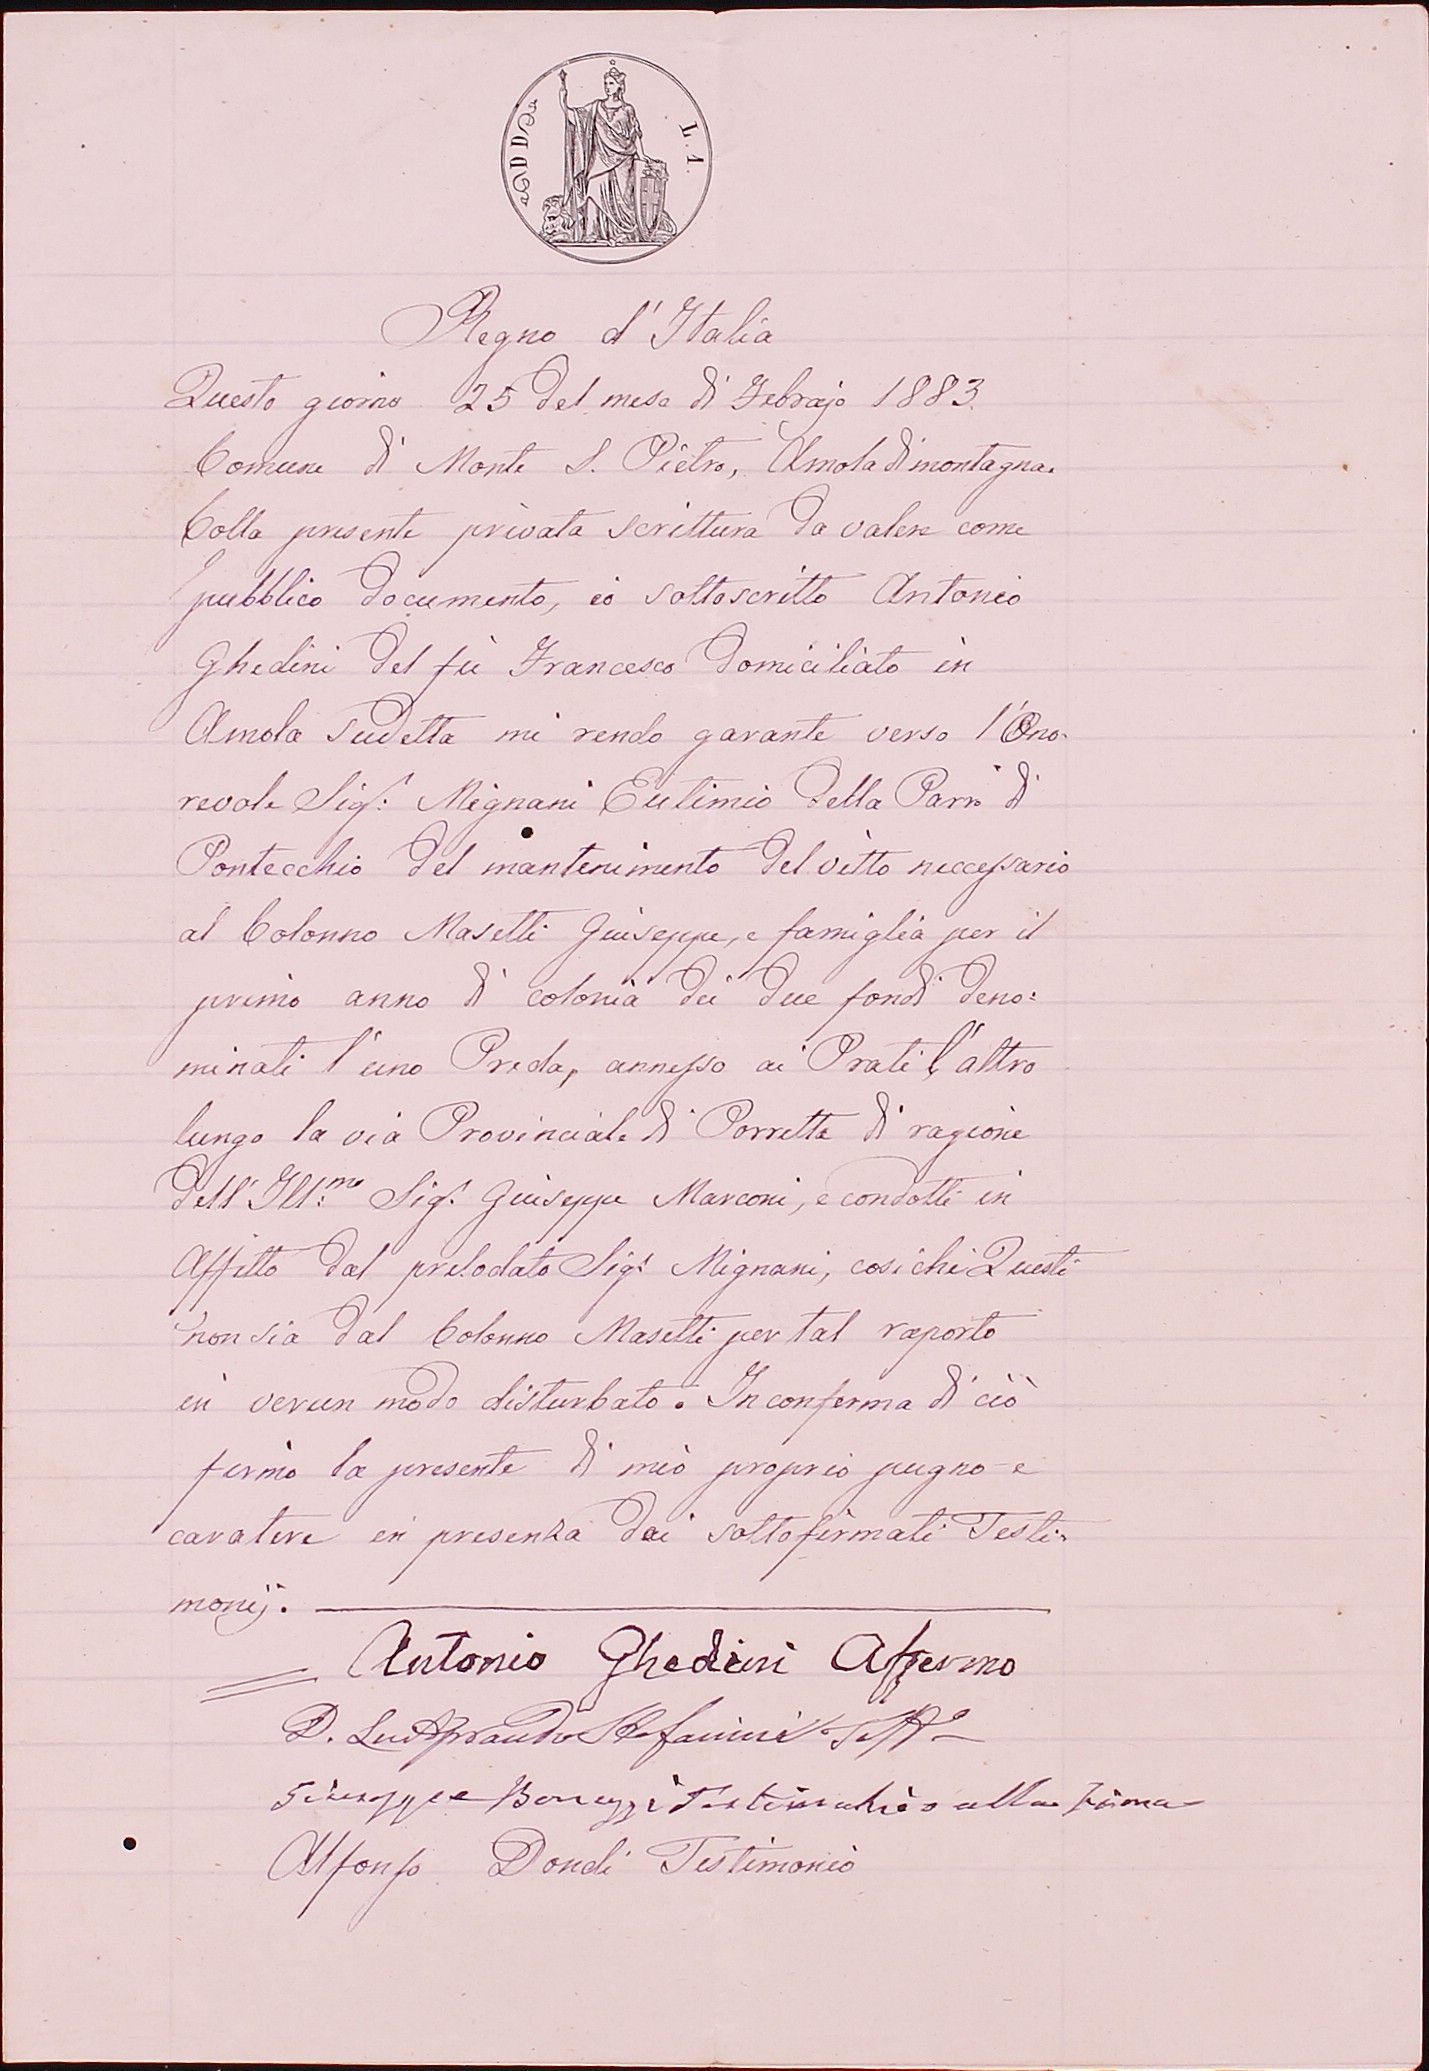 DD
L. 1.
Regno d'Italia
Questo giorno 25 del mese di Febrajo 1883.
Comune di Monte S. Pietro, Amola di montagna.
Colla presente privata scrittura da valere come
pubblico documento, io sottoscritto Antonio
Ghedini del fù Francesco domiciliato in
Amola sudetta mi rendo garante verso l'Ono-
revole Sig.r Mignani Eutimio della Parr.a di
Pontecchio del mantenimento del vitto neccessario
al Colonno Masetti Giuseppe, e famiglia per il
primo anno di colonia dei due fondi deno:
minati l'uno Preda, annesso ai Prati l'altro
lungo la via Provinciale di Porretta di ragione
dell'Ill:mo Sig.r Giuseppe Marconi, e condotti in
Affitto dal prelodato Sig.r Mignani, cosichè Questi
non sia dal Colonno Masetti per tal raporto
in verun modo disturbato. In conferma di ciò
firmo la presente di mio proprio pugno e
caratere in presenza dai sottofirmati Testi-
monij.
Antonio Ghedini Affermo
D. Stefanini
Giuseppe Testimonio alla Firma
Alfonso Dondi Testimonio